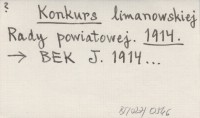 ?
Konkurs limanowskiej
Rady powiatowej. 1914.
→ BEK J. 1914...